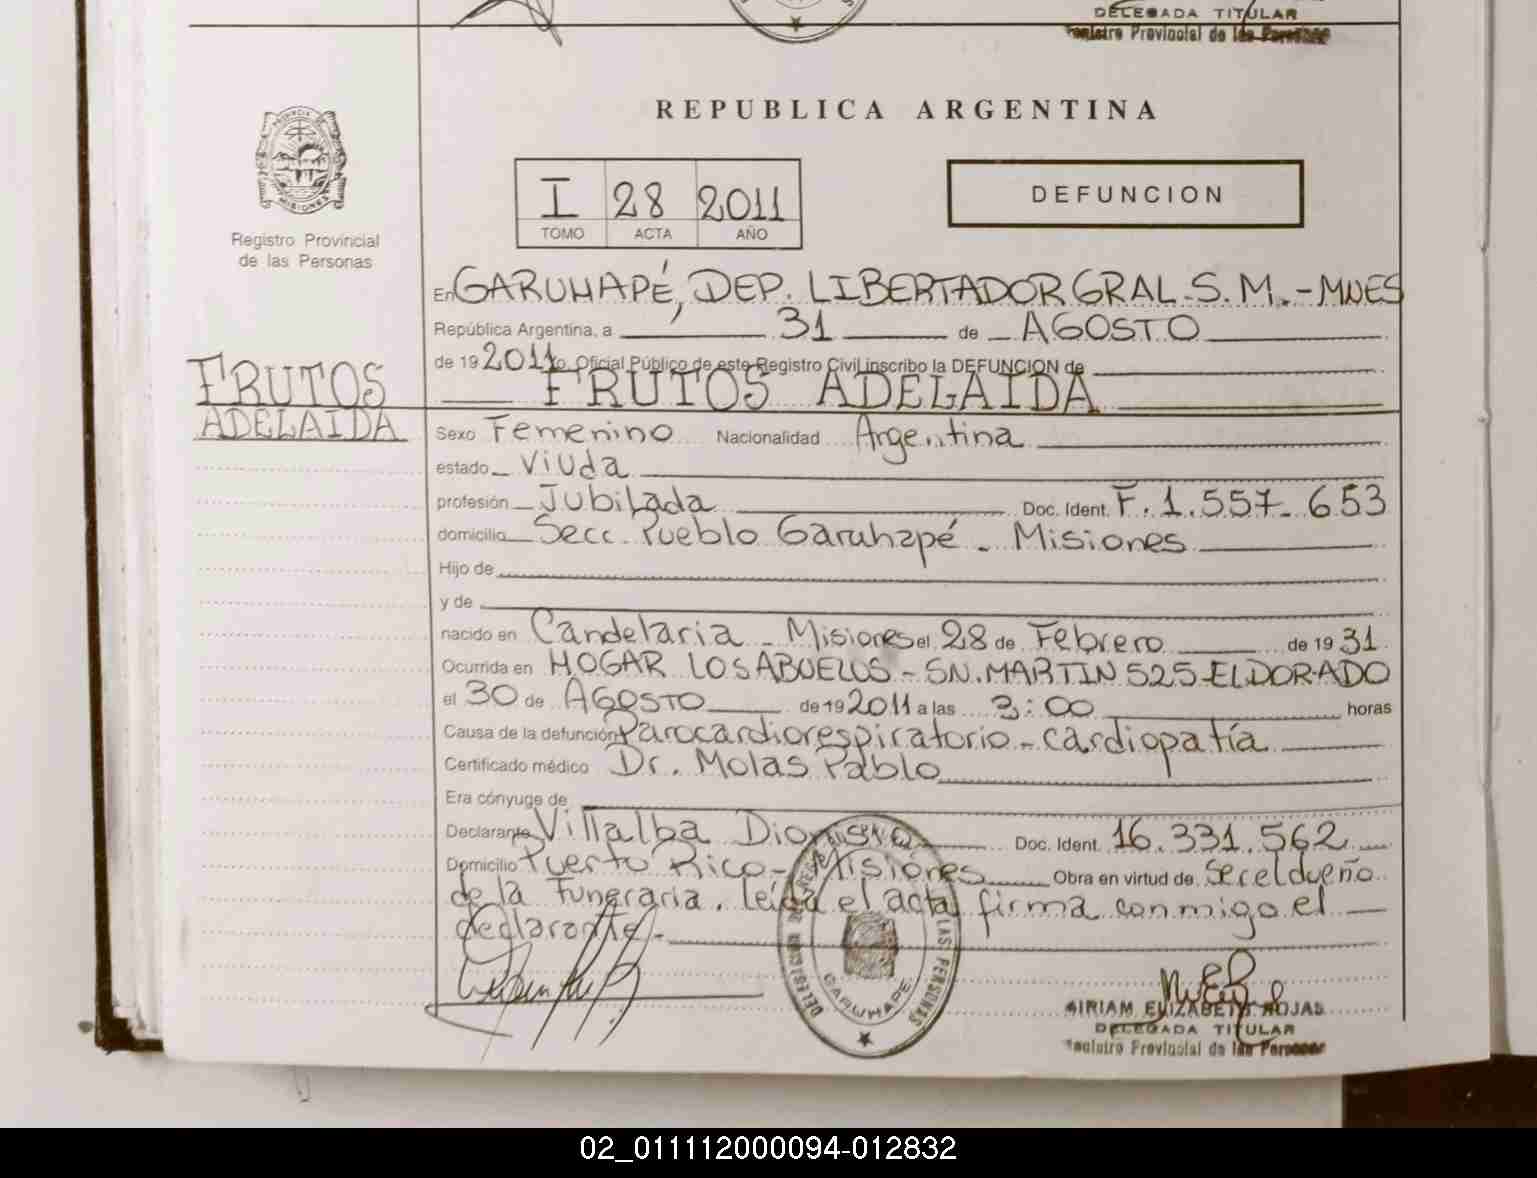 DELEGADA TITULAR
Registro Provincial de las Personas
REPUBLICA ARGENTINA
PROVINCIA DE MISIONES
Registro Provincial
de las Personas
I 28 2011
TOMO ACTA AÑO
DEFUNCION
En GARUHAPÉ, DEP. LIBERTADOR GRAL. S. M. - MNES
República Argentina, a 31 de AGOSTO
de 19 2011 yo, Oficial Público de este Registro Civil inscribo la DEFUNCION de
FRUTOS ADELAIDA
FRUTOS
ADELAIDA
Sexo Femenino Nacionalidad Argentina
estado Viuda
profesión Jubilada Doc. Ident. F. 1.557.653
domicilio Secc. Pueblo Garuhapé - Misiones
Hijo de
y de
nacido en Candelaria - Misiones el 28 de Febrero de 19 31
Ocurrida en HOGAR LOS ABUELOS - SN. MARTIN 525 - ELDORADO
el 30 de AGOSTO de 19 2011 a las 3:00 horas
Causa de la defunción Parocardiorespiratorio - cardiopatía
Certificado médico Dr. Molas Pablo
Era cónyuge de
Declarante Villalba Dionisio Doc. Ident. 16.331.562
Domicilio Puerto Rico - Misiones Obra en virtud de Ser el dueño
de la Funeraria. leída el acta firma conmigo el
declarante.
LAS PERSONAS
GARUHAPE
MIRIAM ELIZABETH ROJAS
DELEGADA TITULAR
Registro Provincial de las Personas
02_011112000094-012832